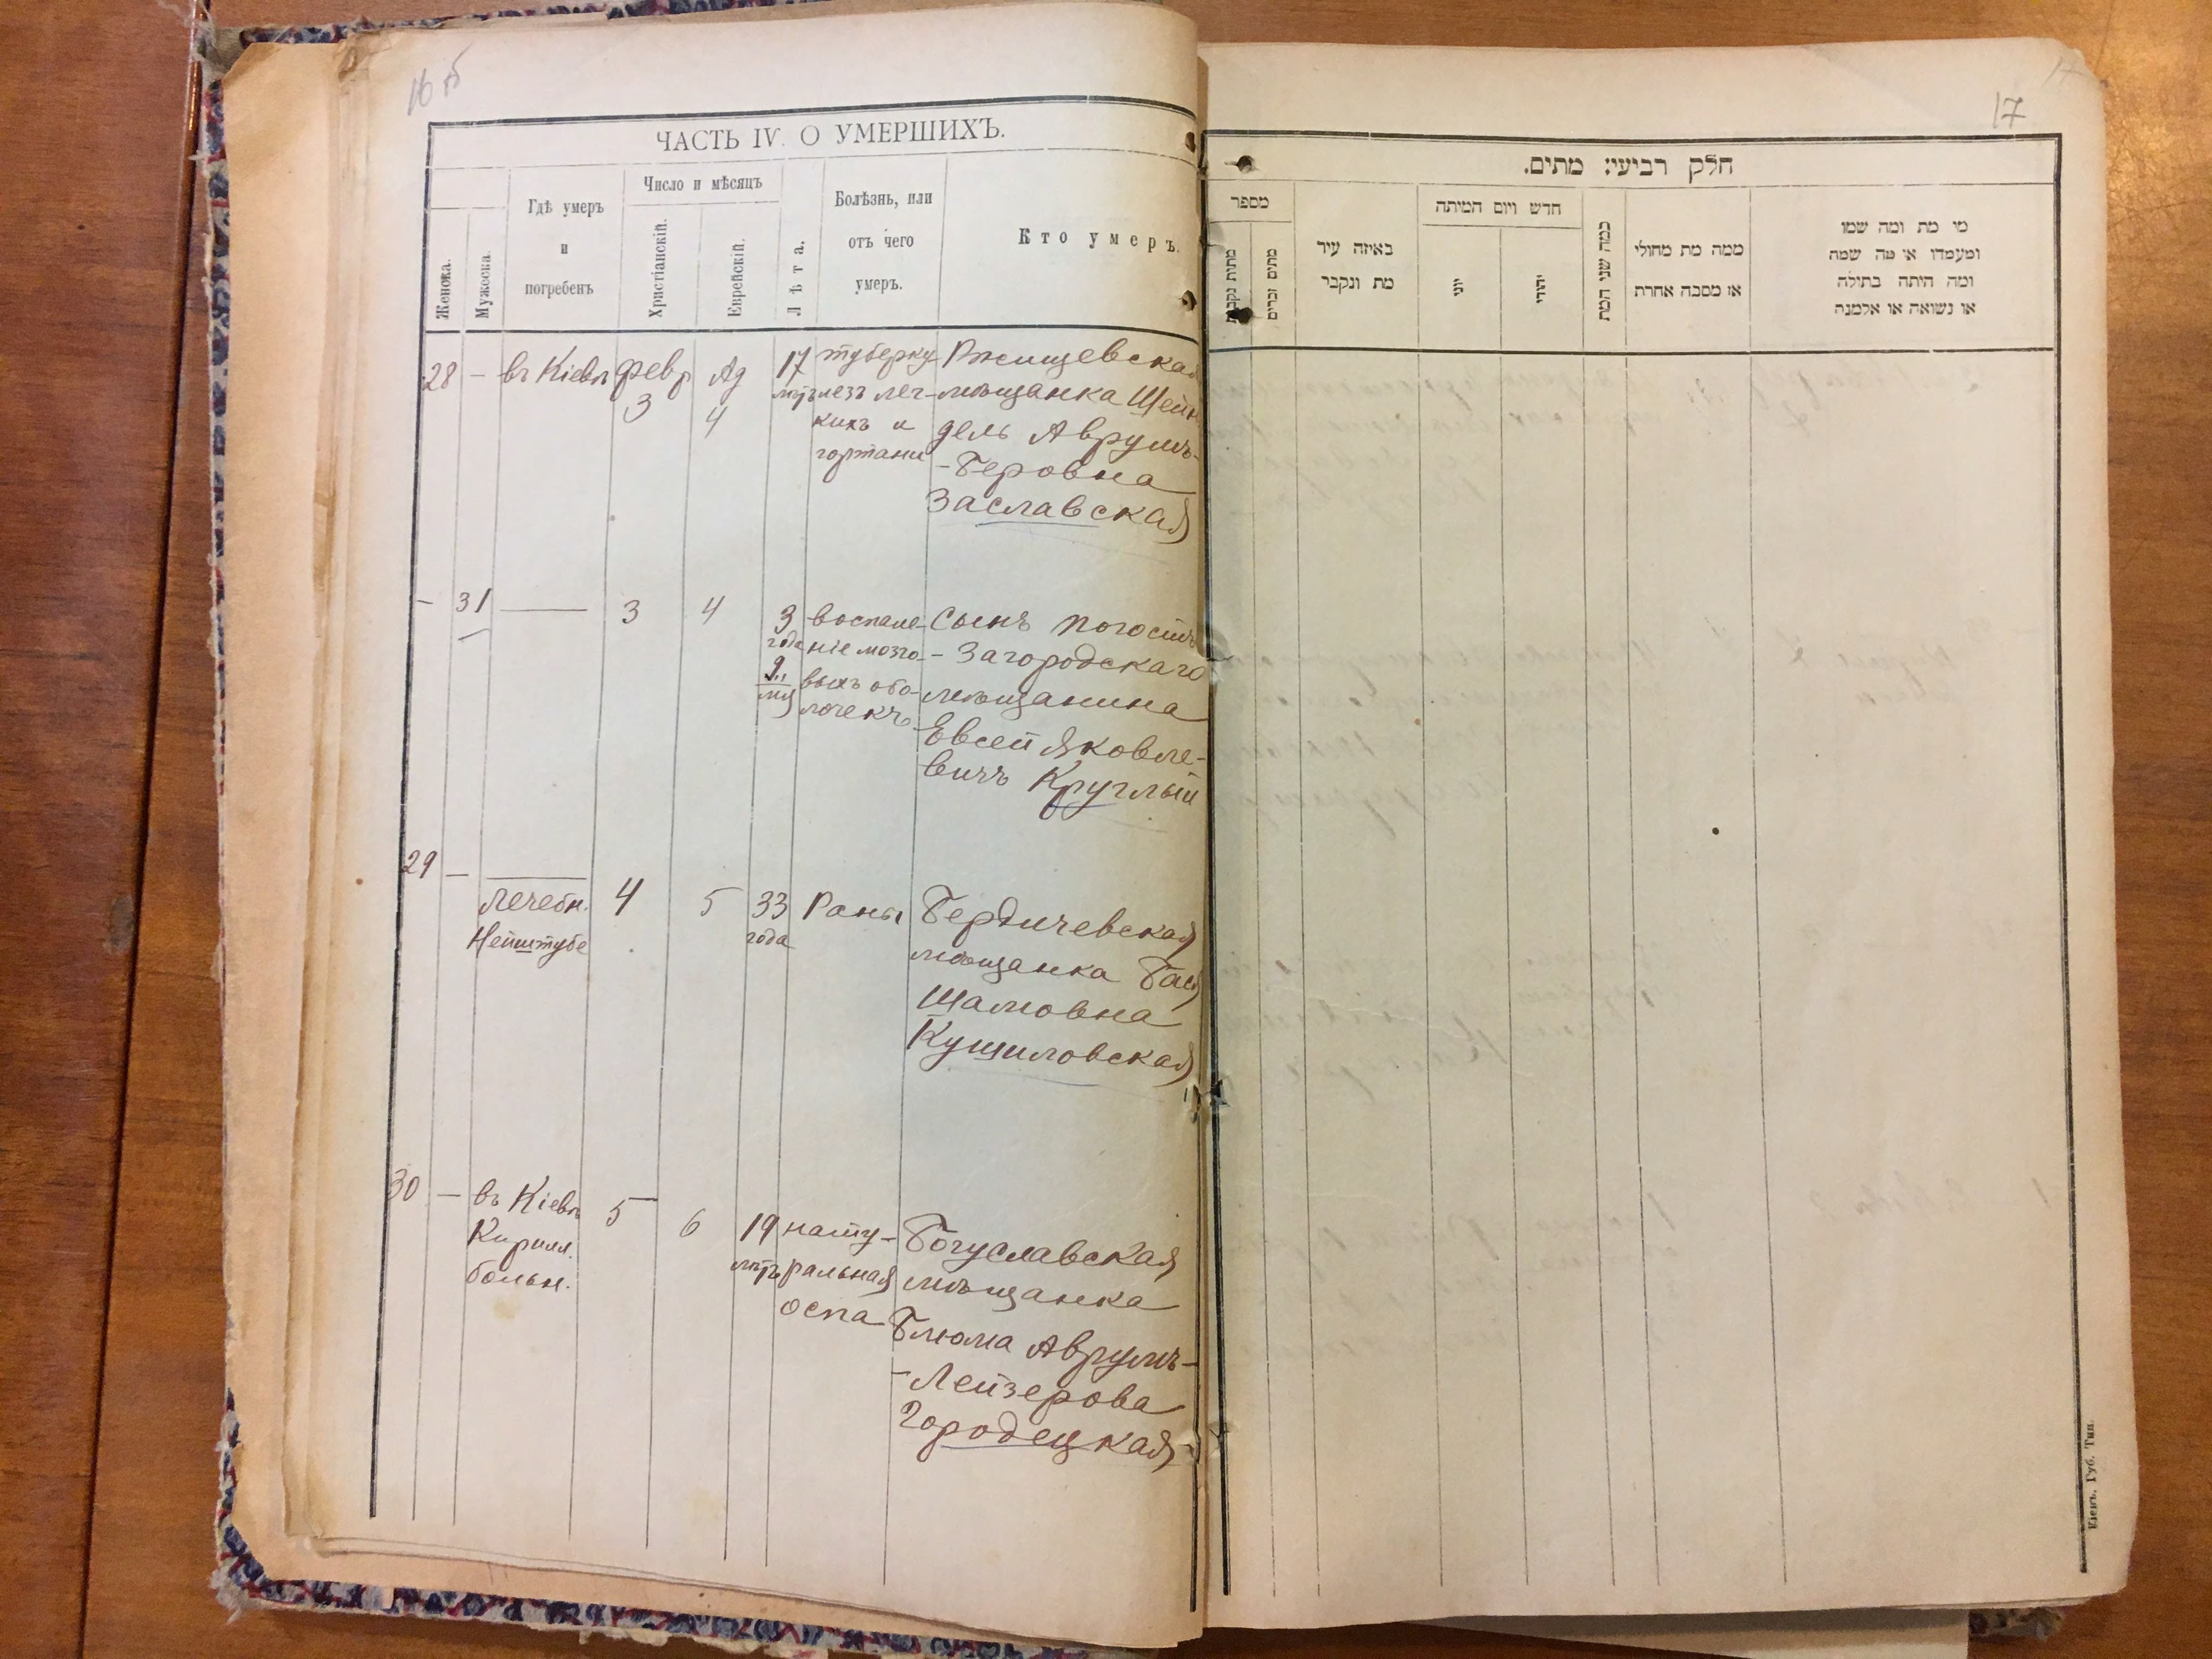 16 об
ЧАСТЬ IV. О УМЕРШИХЪ.
Женска.
Мужеска.
Гдѣ умеръ
и
погребенъ
Число и мѣсяцъ
Христіанскій.
Еврейскій.
Лѣта.
Болѣзнь, или
отъ чего
умеръ.
Кто умеръ.
28 — въ Кіевѣ февр Ад 17 туберку Ржищевская
3 4 лѣтъ лезъ лег- мѣщанка Шейн
кихъ и дель Аврумъ-
гортани -Беровна
Заславская
— 31 —— 3 4 3 воспале- Сынъ Погостъ
года ніе мозго- -Загородскаго
9 м/ц выхъ обо- мѣщанина
лочекъ Евсей Яковле-
вичъ Круглый
29 — ——
Лечебн. 4 5 33 Раны Бердичевская
Нейштубе года мѣщанка Бася
Шамовна
Кушиловская
30 — въ Кіевѣ 5 6 19 нату- Богуславская
Кирилл. лѣтъ ральная мѣщанка
больн. оспа Блюма Аврумъ-
-Лейзерова
Городецкая
17
חלק רביעי: מתים.
מספר
מתות נקבות
מתים זכרים
באיזה עיר
מת ונקבר
חדש ויום המיתה
יוני
יהודי
כמה שני המת
ממה מת מחולי
או מסבה אחרת
מי מת ומה שמו
ומעמדו או מה שמה
ומה היתה בתולה
או נשואה או אלמנה
Кіевъ. Губ. Тип.